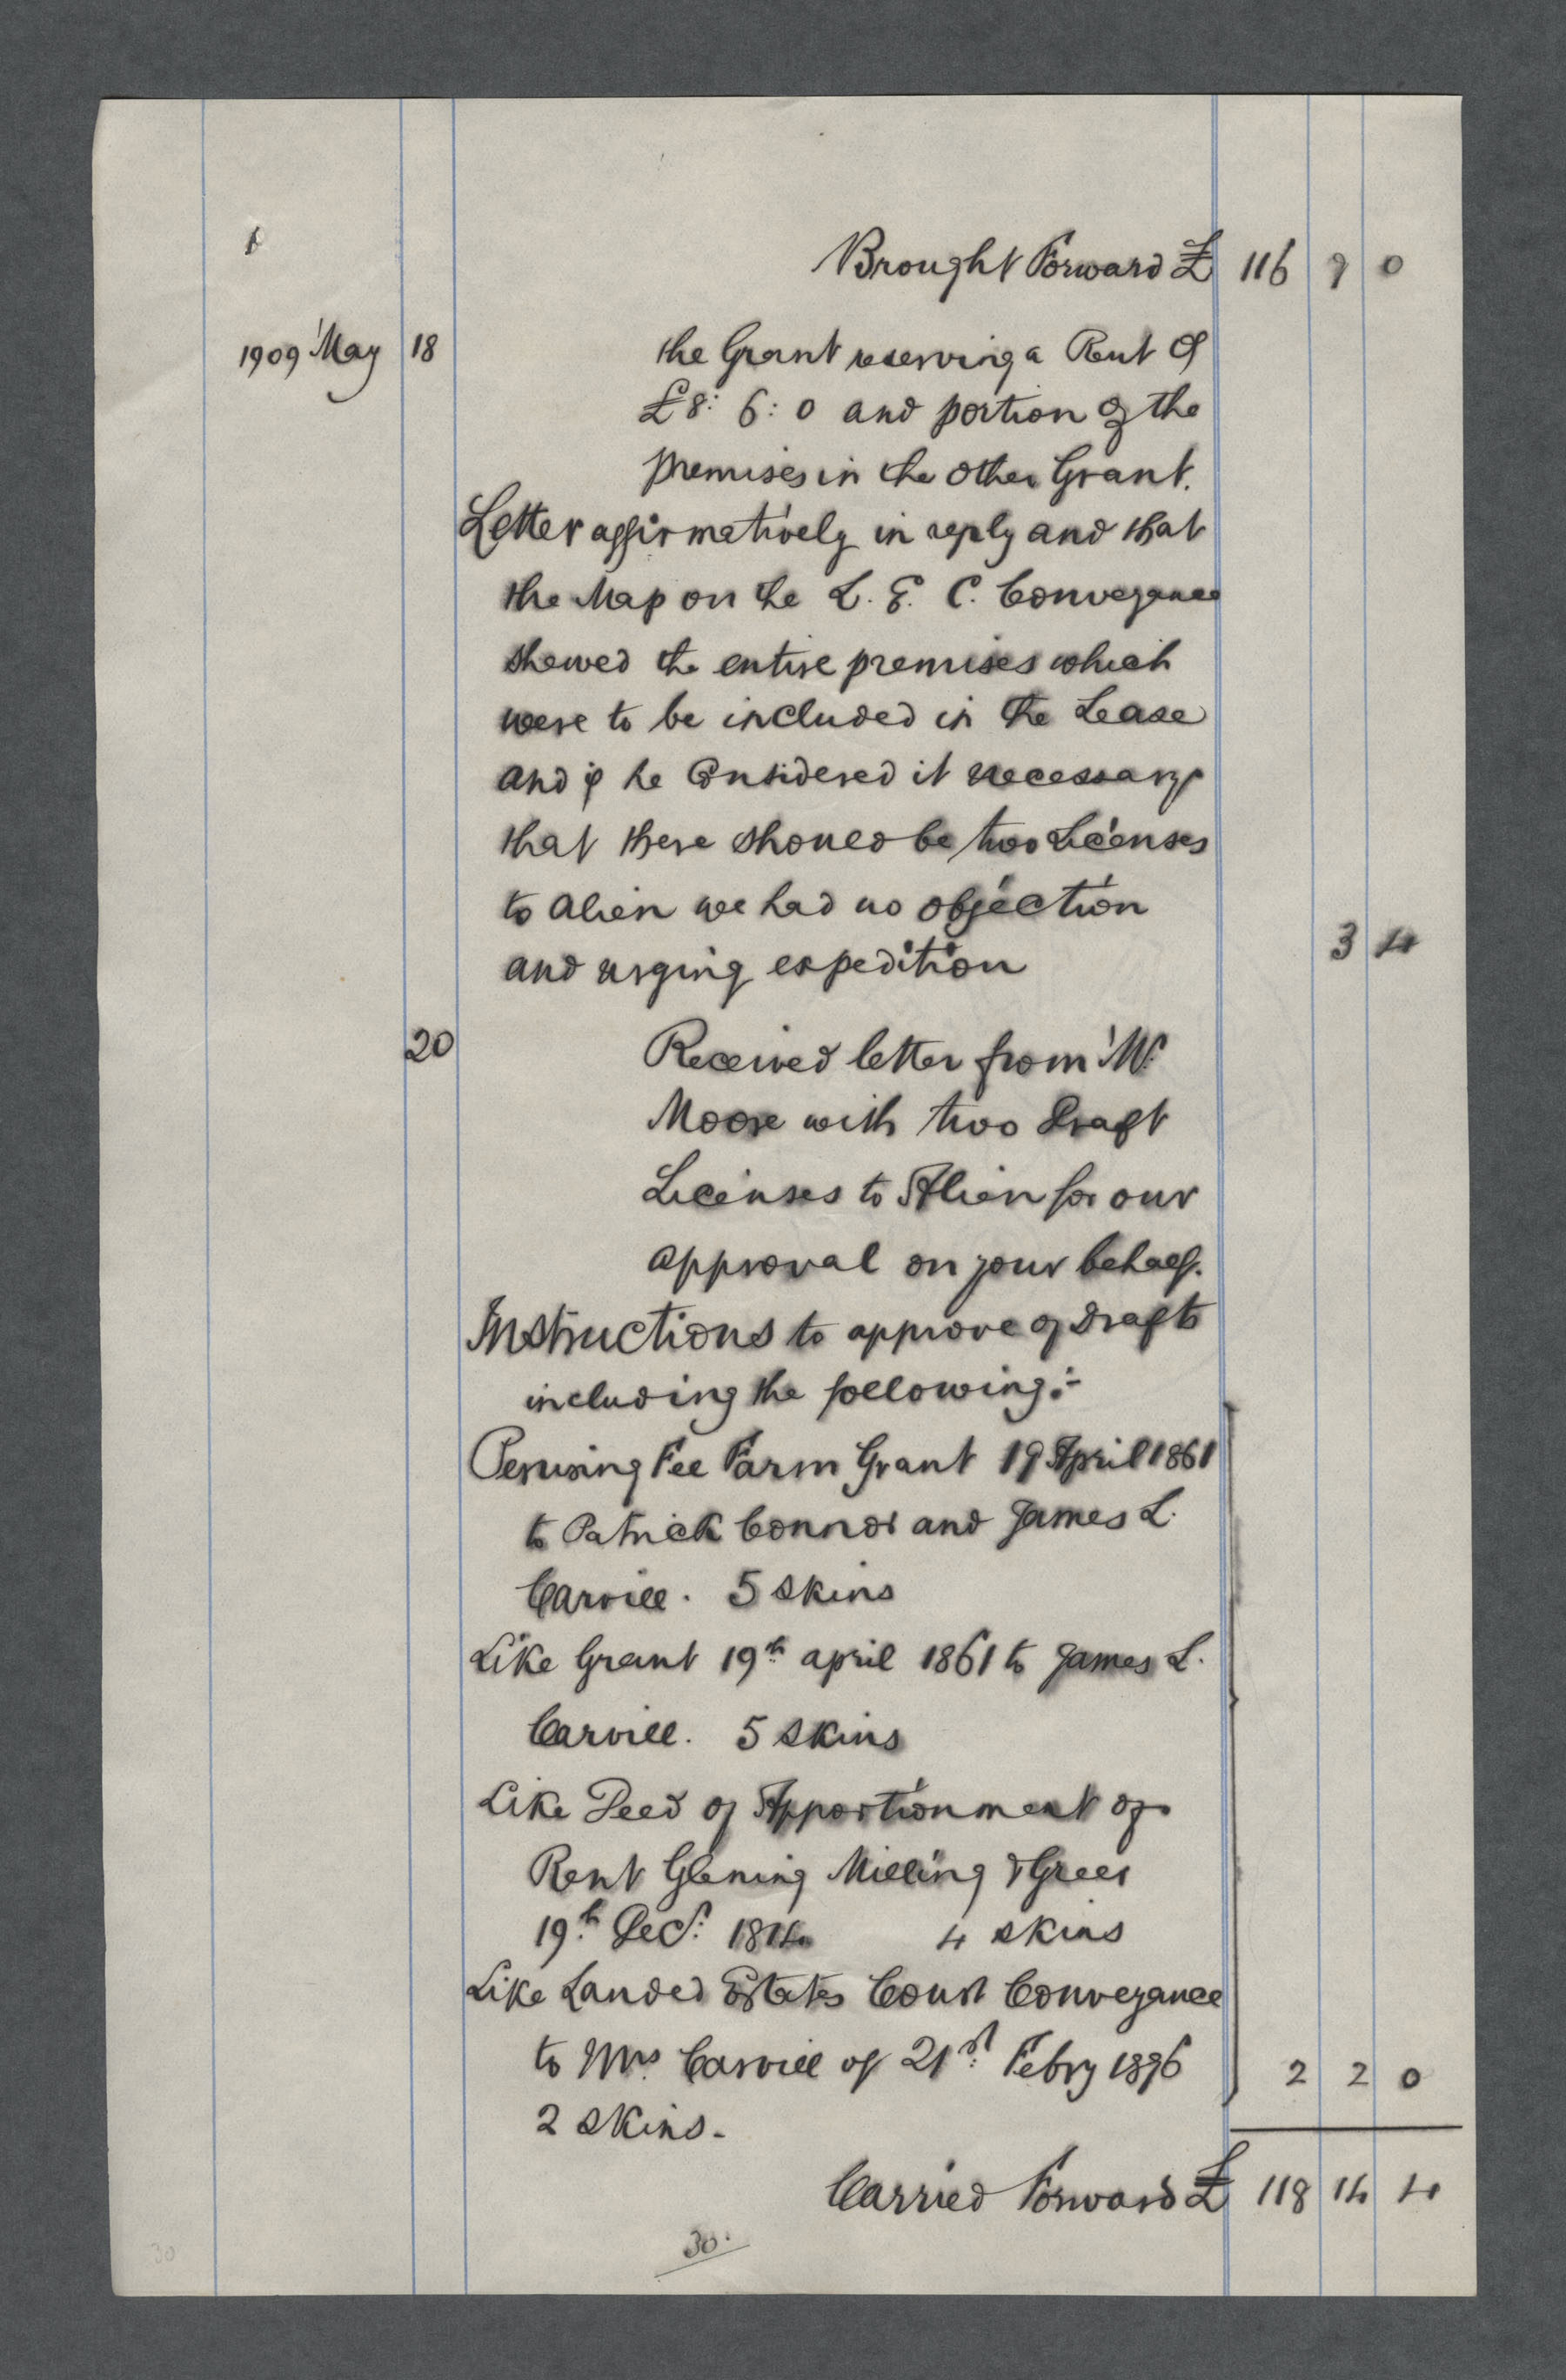 Brought Forward £ 116 9 0
1909 May 18 the Grant reserving a Rent of
£8: 6: 0 and portion of the
premises in the other Grant.
Letter affirmatively in reply and that
the Map on the L. E. C. Conveyance
shewed the entire premises which
were to be included in the Lease
and if he Considered it necessary
that there should be two Licenses
to alien we had no objection
and urging expedition 3 4
20 Received letter from Mr.
Moore with two Draft
Licenses to Alien for our
approval on your behalf.
Instructions to approve of Drafts
including the following:-
Perusing Fee Farm Grant 19 April 1861
to Patrick Connor and James L.
Carvill. 5 skins
Like Grant 19th april 1861 to James L.
Carvill. 5 skins
Like Deed of Apportionment of
Rent Milling & Greer
19th Decr. 4 skins
Like Landed Estates Court Conveyance
to Mrs. Carvill of 21st Febry 1896 2 2 0
2 skins.
Carried Forward £ 118 14 4
30.
30